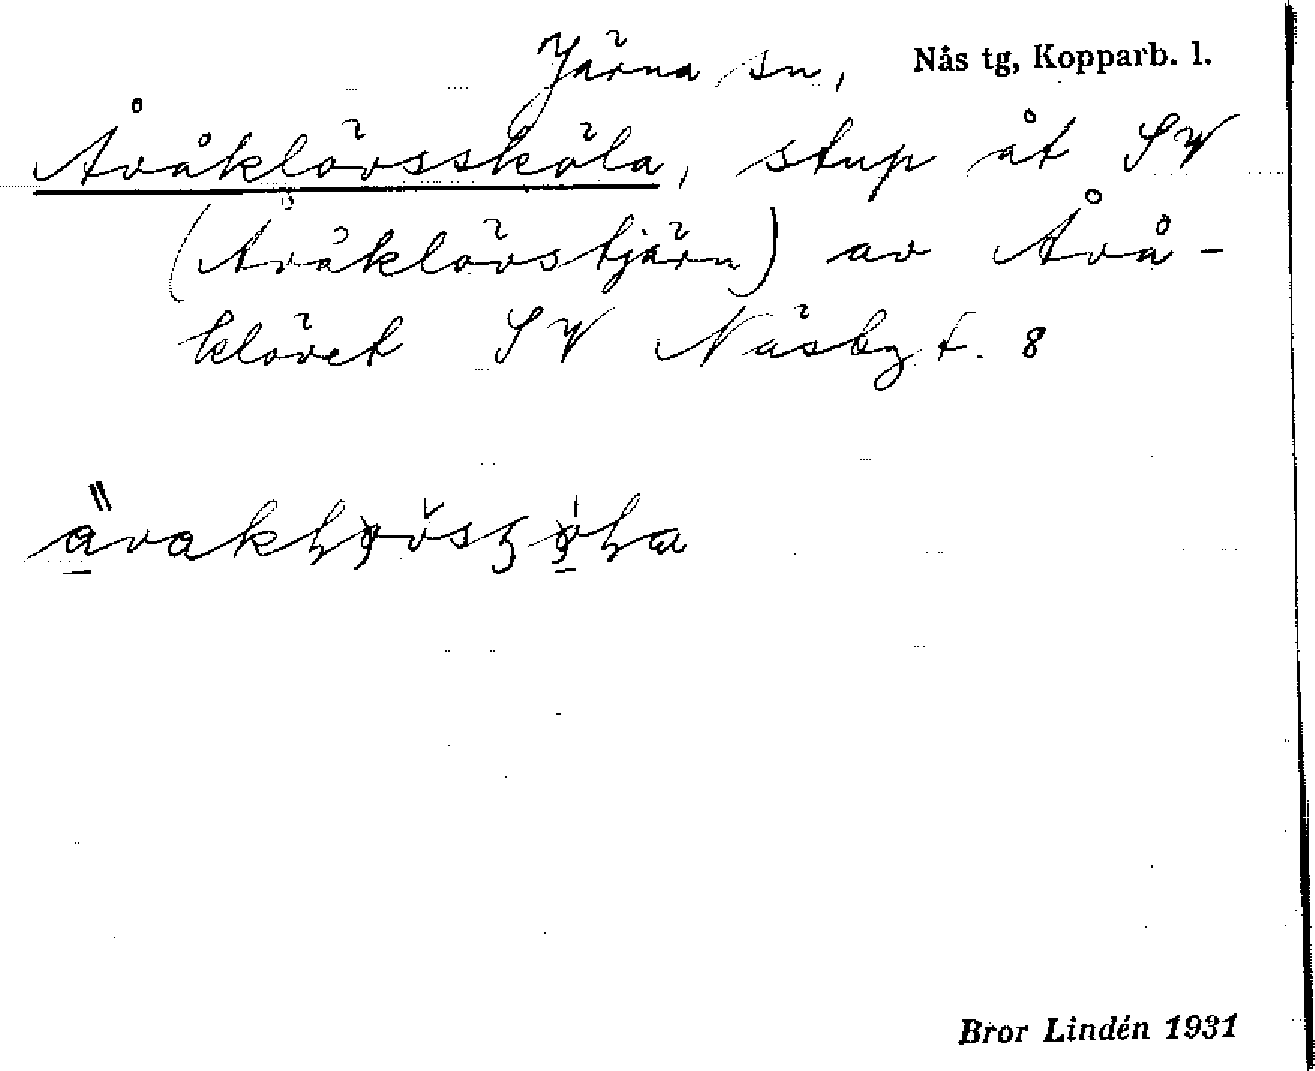 Järna sn, Nås tg, Kopparb. l.
Åvåklövssköla, stup åt SV
(Åvåklövstjärn) av Åvå-
klövet SV Näsby f. 8
Bror Lindén 1931